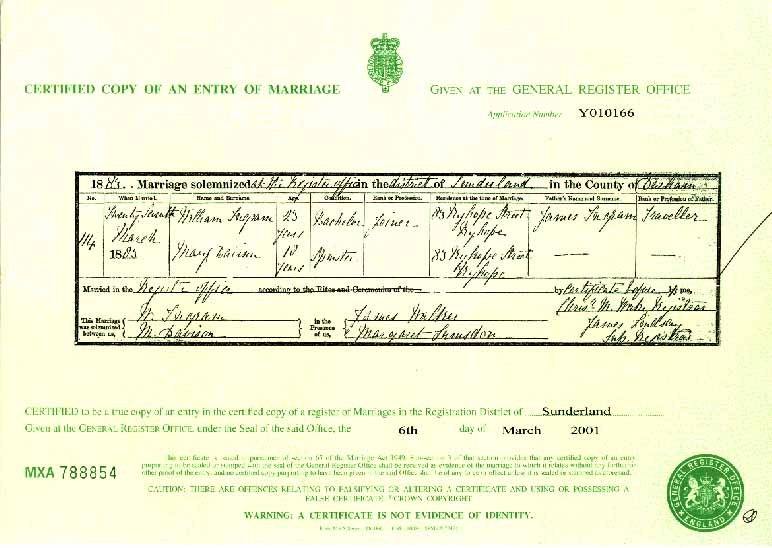 CERTIFIED COPY OF AN ENTRY OF MARRIAGE
GIVEN AT THE GENERAL REGISTER OFFICE
Application Number Y010166
1883. Marriage solemnized at the Register Office in the district of Sunderland in the County of
No. When Married. Name and Surname. Age. Condition. Rank or Profession. Residence at the time of Marriage. Father's Name and Surname. Rank or Profession of Father.
Twenty seventh William Ingram 23 Bachelor Joiner 83 Ryhope Street James Ingram Traveller
March years Ryhope
1883 Mary Davison 18 Spinster 83 Ryhope Street
years Ryhope
Married in the Register Office according to the Rites and Ceremonies of the by Certificate before by me,
This Marriage was solemnized between us, W. Ingram
M. Davison
in the Presence of us, James
Margaret
Registrar
James Lindsay
Registrar
CERTIFIED to be a true copy of an entry in the certified copy of a register of Marriages in the Registration District of Sunderland
Given at the GENERAL REGISTER OFFICE, under the Seal of the said Office, the 6th day of March 2001
MXA 788854
This certificate is issued in pursuance of section 65 of the Marriage Act 1949. Sub-section 3 of that section provides that any certified copy of an entry
purporting to be sealed or stamped with the seal of the General Register Office shall be received as evidence of the marriage to which it relates without any further or
other proof of the entry, and no certified copy purporting to have been given in the said Office shall be of any force or effect unless it is sealed or stamped as aforesaid.
CAUTION: THERE ARE OFFENCES RELATING TO FALSIFYING OR ALTERING A CERTIFICATE AND USING OR POSSESSING A
FALSE CERTIFICATE. ©CROWN COPYRIGHT
WARNING: A CERTIFICATE IS NOT EVIDENCE OF IDENTITY.
GENERAL REGISTER OFFICE
ENGLAND